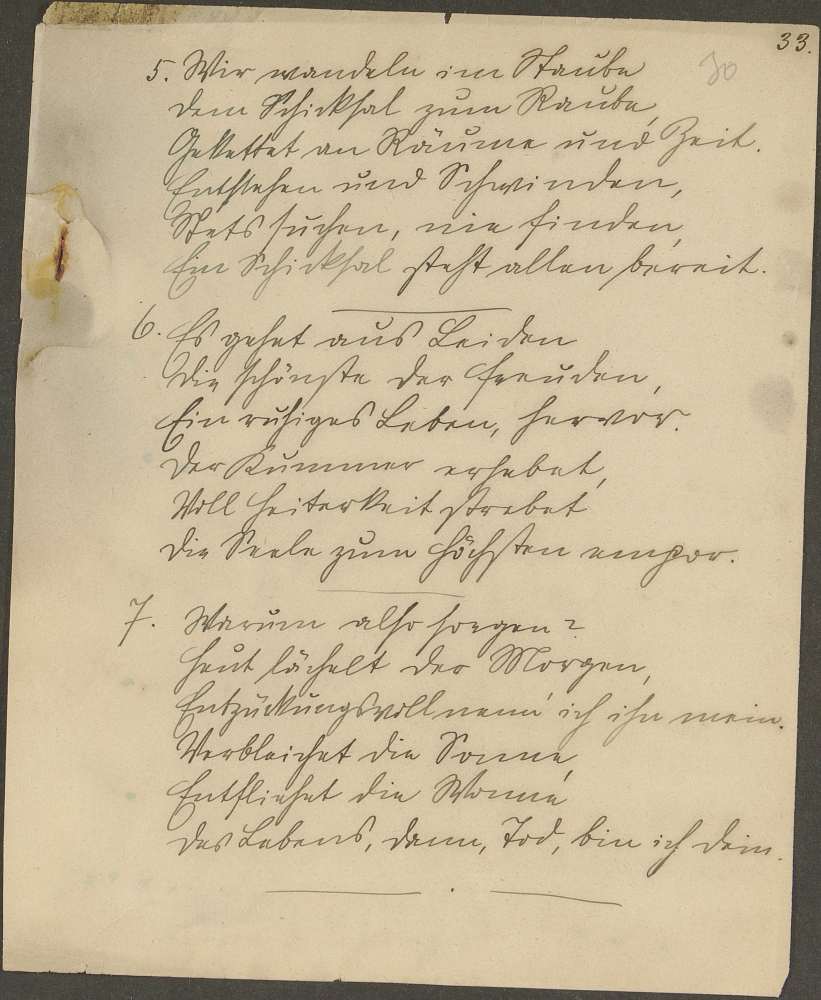 33.
30
5. Wir wandeln im Staube
Dem Schicksal zum Raube,
Gekettet an Räume und Zeit.
Entstehen und Schwinden,
Stets suchen, nie finden,
Ein Schicksal steht allen bereit.
6. Es gehet aus Leiden
Die schönste der Freuden,
Ein ruhiges Leben, hervor.
Der Kummer erhebet,
Voll Heiterkeit strebet
Die Seele zum Höchsten empor.
7. Warum also sorgen?
Heut lächelt der Morgen,
Entzückungsvoll nenn' ich ihn mein.
Verbleichet die Sonne,
Entfliehet die Wonne
Des Lebens, dann, Tod, bin ich dein.